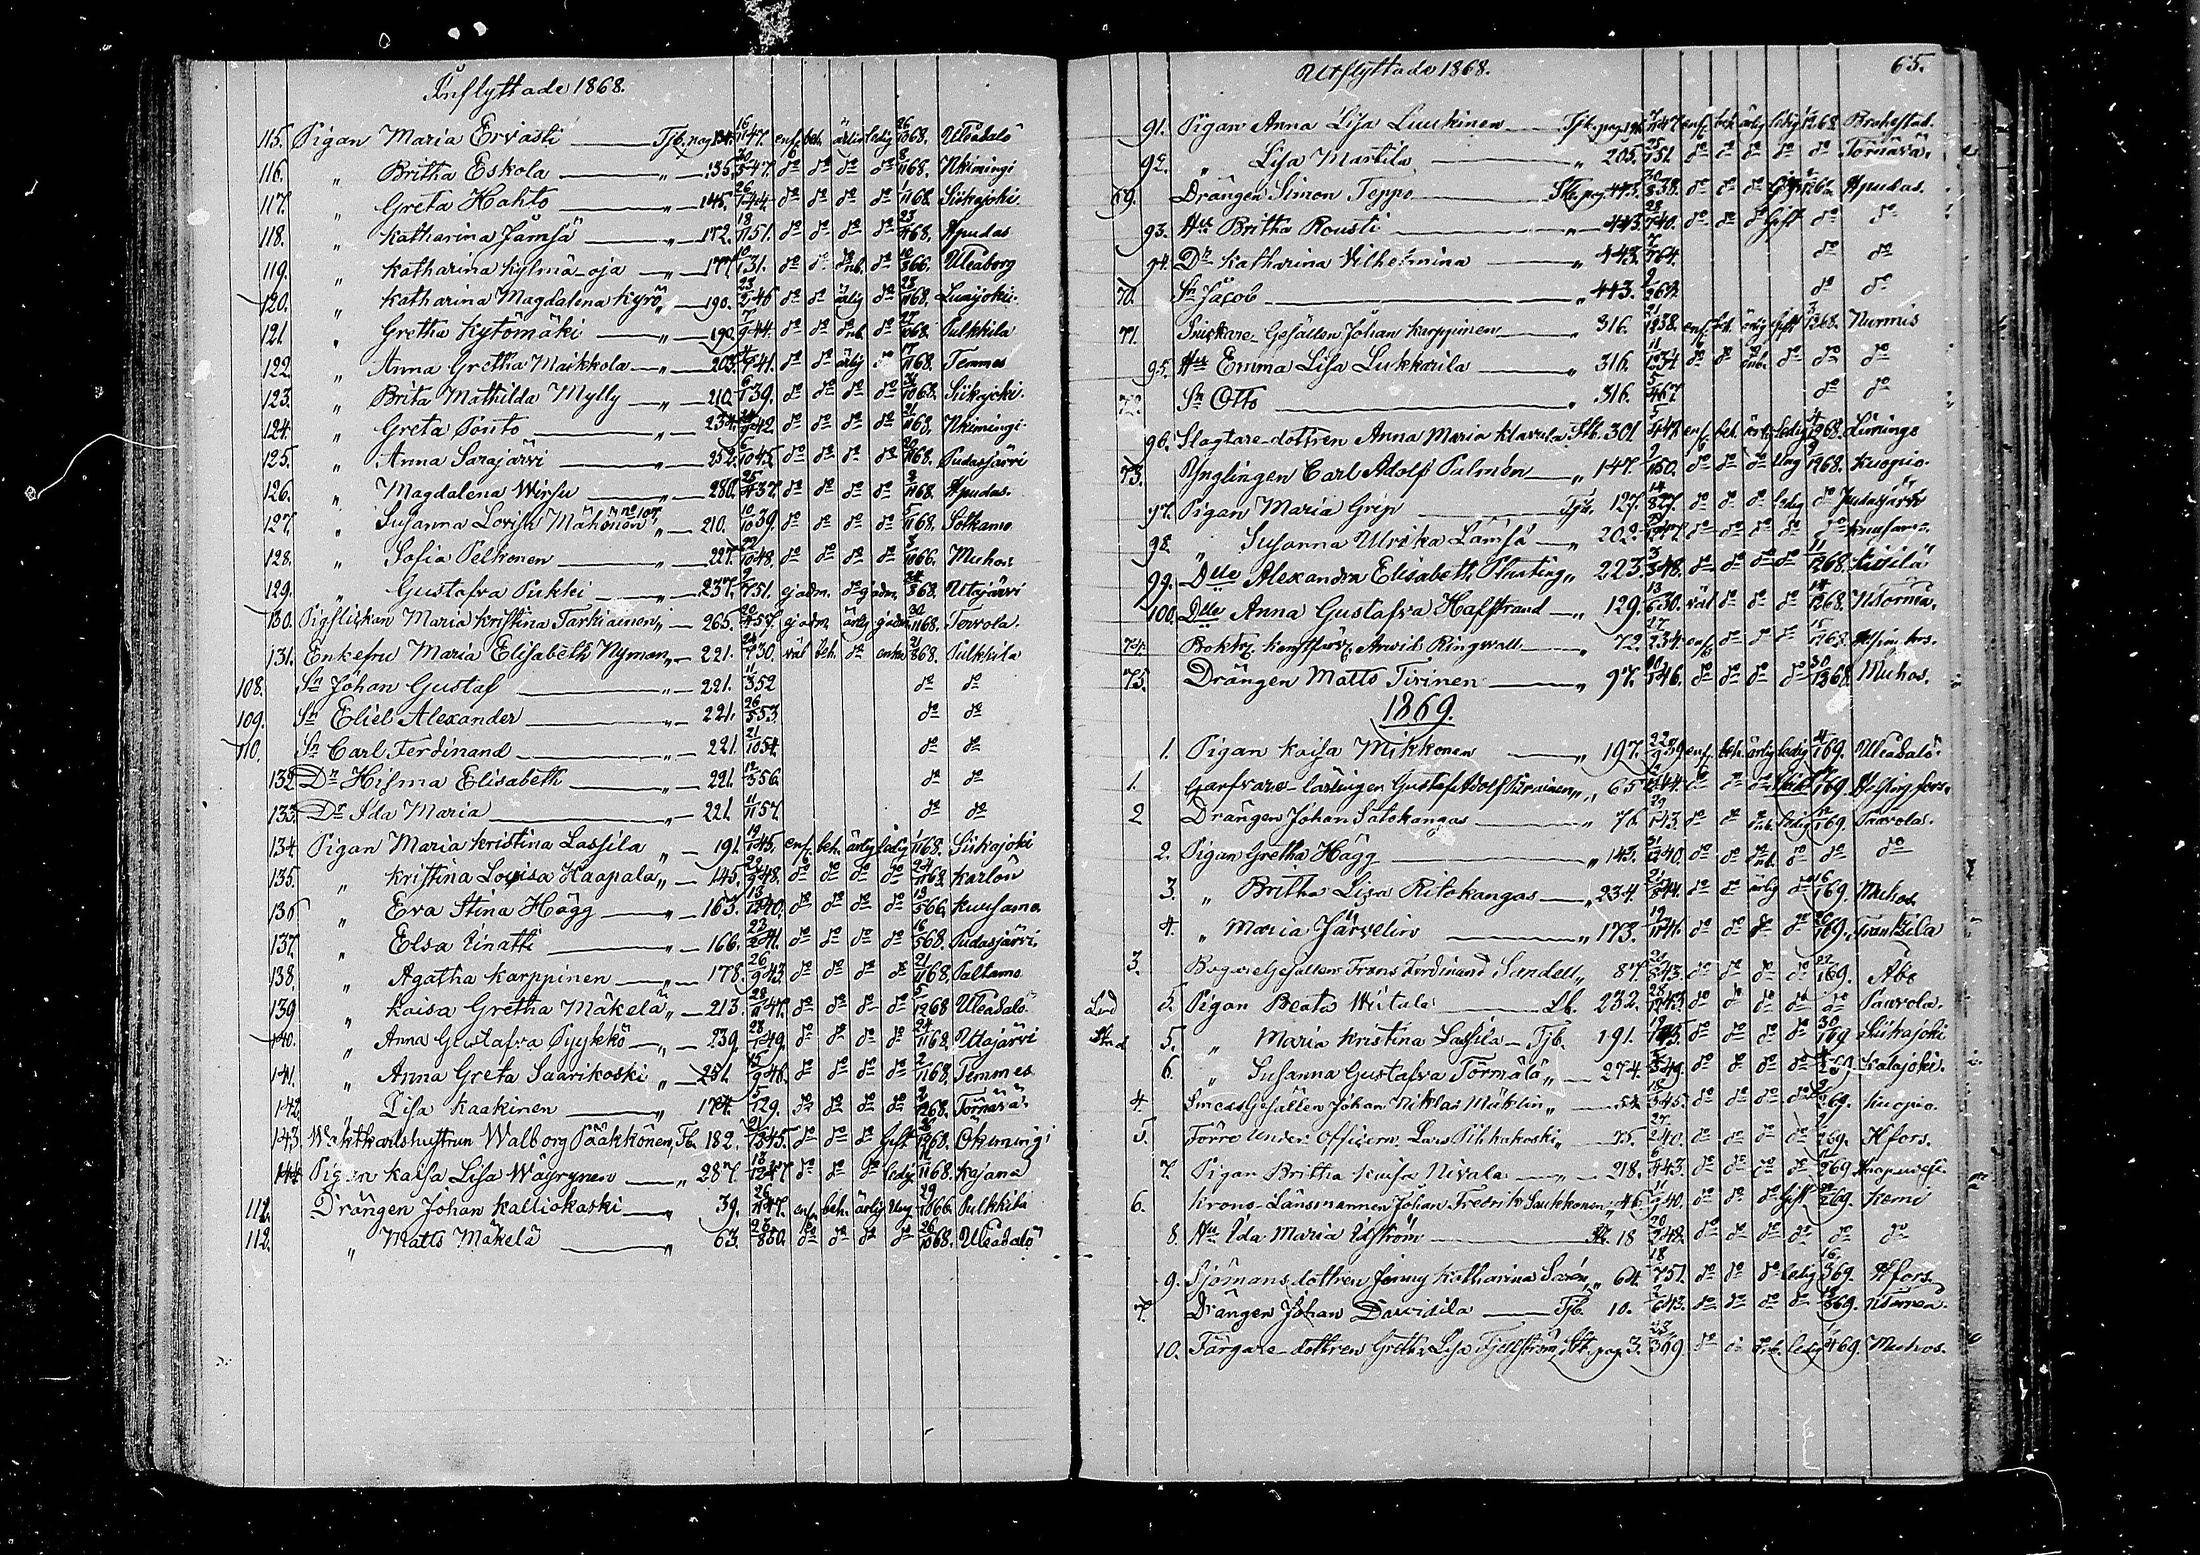 Inflyttade 1868.
115. Pigan Maria Ervasti Tjb. pag 134. 16/11 47. enf. beh. ärlig ledig 26/10 68. Uleåsalo
116. " Britha Eskola " 135. 30/5 47. do do do do 8/11 68. Nkimingi
117. " Greta Hahto " 145. 26/1 44. do do do do 1/11 68. Siikajoki
118. " Katharina Jämsä " 172. 18/11 51. do do do do 23/11 68. Hpudas
119. " Katharina Kylmä-oja " 177. 10/1 31. do do do do Uleåborg
120. " Katharina Magdalena Kyrö " 190. 23/2 46 do do ärlig do 28/11 68. Lumijoki.
121. " Gretha Kytömäki " 192. 7/9 44. do do do 27/10 68. Pulkkila
122. " Anna Gretha Markkola " 203. 41. do do ärlig do 17/11 68. Temmes
123. " Brita Mathilda Mylly " 210. 6/1 39. do do do do 31/10 68. Siikajoki.
124. " Greta Ponto " 234. 42 do do do do 21/11 68. Nkimingi
125. " Anna Sarajärvi " 252. 10 45. do do do do 68. Pudasjärvi
126. " Magdalena Wirsu " 280. 37. do do do do 68. Hpudas.
127. " Susanna Lovisa Mähönen no 107 " 210. 10/10 39. do do do do 5/11 68. Sotkamo
128. " Sofia Pelkonen " 227. 22/10 48. do do do do 66. Muhos
129. " Gustafva Pukki " 237. 51. ej adm. do ej adm. 68. Utajärvi
130. Pigflickan Maria Kristina Tarkiainen " 265. 20/4 57 ej adm. ärlig ej adm. 30/11 68. Tervola.
131. Enkefru Maria Elisabeth Nyman " 221. 30. väl beh. do enka 21/8 68. Pulkkila
108. Sn Johan Gustaf " 221. 11/3 52 do do
109. Sn Eliel Alexander " 221. 26/5 53. do do
110. Sn Carl Ferdinand " 221. 21/10 54. do do
132. Dr Hilma Elisabeth " 221. 12/3 56. do do
133. Dr Ida Maria " 221. 11/11 57. do do
134. Pigan Maria Kristina Lassila " 191. 19/1 45. enf. beh. ärlig ledig 1/11 68. Siikajoki
135. " Kristina Lovisa Haapala " 145. 22/9 48. do do do do 24/11 68. Karlön
136 " Eva Stina Hägg " 163. 13/12 40. do do do do 13/5 66. Kuusamo.
137. " Elsa Einatti " 166. 23/2 41. do do do do 16/5 68. Pudasjärvi.
138. " Agatha Karppinen " 178. 26/9 43. do do do do 21/11 68. Paltamo
139. " Kaisa Gretha Mäkelä " 213. 28/11 47. do do do do 5/12 68 Uleåsalo
140. " Anna Gustafva Pyykkö " 239. 28/1 49. do do do do 24/11 68. Utajärvi
141. " Anna Greta Saarikoski " 251. 15/9 46. do do do do 2/11 68. Temmes
142. " Lisa Kaakinen " 174. 5/1 29. do do do do 68. Torneå.
143. Waktkarlshustrun Walborg Pääkkönen, Fb. 182. 21/12 45. do do do gift 68. Okimingi
144 Pigan Kaisa Lisa Wäyrynen " 287. 13/12 47 do do do ledig 11/11 68. Kajana
111. Drängen Johan Kalliokoski " 39. 26/11 47. enf. beh. ärlig Ung 29/10 66. Pulkkila
112. " Matts Mäkelä " 63. 28/8 50. do do do do 26/10 68. Uleåsalo

Utflyttade 1868. 65.
91. Pigan Anna Lisa Luukinen Tjb. pag. 47 enf. beh. ärlig ledig 68. Brahestad.
92. " Lisa Martila " 205. 25/1 51. do do do do do Torneå.
69. Drängen Simon Teppo Stb. pag 443. 30/8 38. do do do Gift 68. Hpudas.
93. Hu Britha Rousti " 443. 28/7 40. do do do Gift do do
94. Dr Katharina Vilhelmina " 443. 7/7 64. do do
70. Sn Jacob " 443. do do
71. Snickare-Gesällen Johan Karppinen " 316. 21/12 38. enf. beh. ärlig gift 3/12 68. Nurmis
95. Hu Emma Lisa Lukkarila " 316. 11/10 34 do do do do do
72. Sn Otto " 316. 5/4 67. do do
96. Slagtare-dottren Anna Maria Klavula Stb. 301. 47. enf. beh. ärlig ledig 4/12 68. Liminge
73. Ynglingen Carl Adolf Palmén " 147. 50. do do do Ung 68. Kuopio.
97. Pigan Maria Grip Tjb. 127. 14/8 27. do do do ledig do Pudasjärvi
98. " Susanna Ulrika Lämsä " 202. 47. do do do do do Kuusamo.
99. Dlle Alexandra Elisabeth " 223. 3/3 48. do do do do 11/12 68.
100. Dlle Anna Gustafva Hafstrand " 129. 13/6 30. väl do do do 14/12 68. NTorneå.
74. Boktr. Konstförv. Arvid Ringwall " 72. 17/2 34. enf. do do do 15/12 68.
75. Drängen Matts Tirinen " 97. 46. do do do do 30/12 68. Muhos.
1869.
1. Pigan Kaisa Mikkonen " 197. 22/9 39 enf. beh. ärlig ledig 4/1 69. Uleåsalo.
1. Garfvare-lärlingen Gustaf Adolf " 65 44. do do do 69. Helsingfors.
2 Drängen Johan Satokangas " 76. 29/1 43. do do ledig 69. Paavola.
2. Pigan Gretha Hägg " 143. 31/12 40. do do do do do
3. " Britha Lisa Ritokangas " 234. 21/8 44. do do ärlig do 16/1 69. Muhos.
4. " Maria Järvelin " 173. 19/11 41. do do do do 20/1 69. Frantsila
3. Bagare Gesällen Frans Ferdinand Sandell " 87. 43. do do do do 22/1 69. Åbo
5. Pigan Beata Wiitala Lb. 232. 28/12 43 do do do do do Paavola.
5. " Maria Kristina Lassila Tjb. 191. 19/1 45. do do do do 30/1 69 Siikajoki
6. " Susanna Gustafva Törmälä " 274. 49. do do do do 69 Kalajoki.
4. Smeds Gesällen Johan Niklas Mäklin " 54. 18/3 45. do do do do 69. Kuopio.
5. Förre Under Officern Lars Pihkakoski " 75. 27/2 40. do do do do 69. Hfors.
7. Pigan Britha Kaisa Nivala " 218. 6/4 43. do do do do 69.
6. Krono-Länsmannen Johan Fredrik Saukkonen " 46. 40. do do do gift 22/2 69. Kemi
8. Hu Ida Maria Idström St. 18 20/2 48. do do do do do do
9. Sjömansdottren Jenny Katharina Sarén " 64. 18/7 51. do do do ledig 16/3 69. Hfors
7. Drängen Johan Davidila Tjb. 10. 2/6 43. do do do do 69. NTorneå.
10. Färgare-dottren Greta Lisa Fjellström St. pag. 3. 39. do do ledig 69. Muhos.